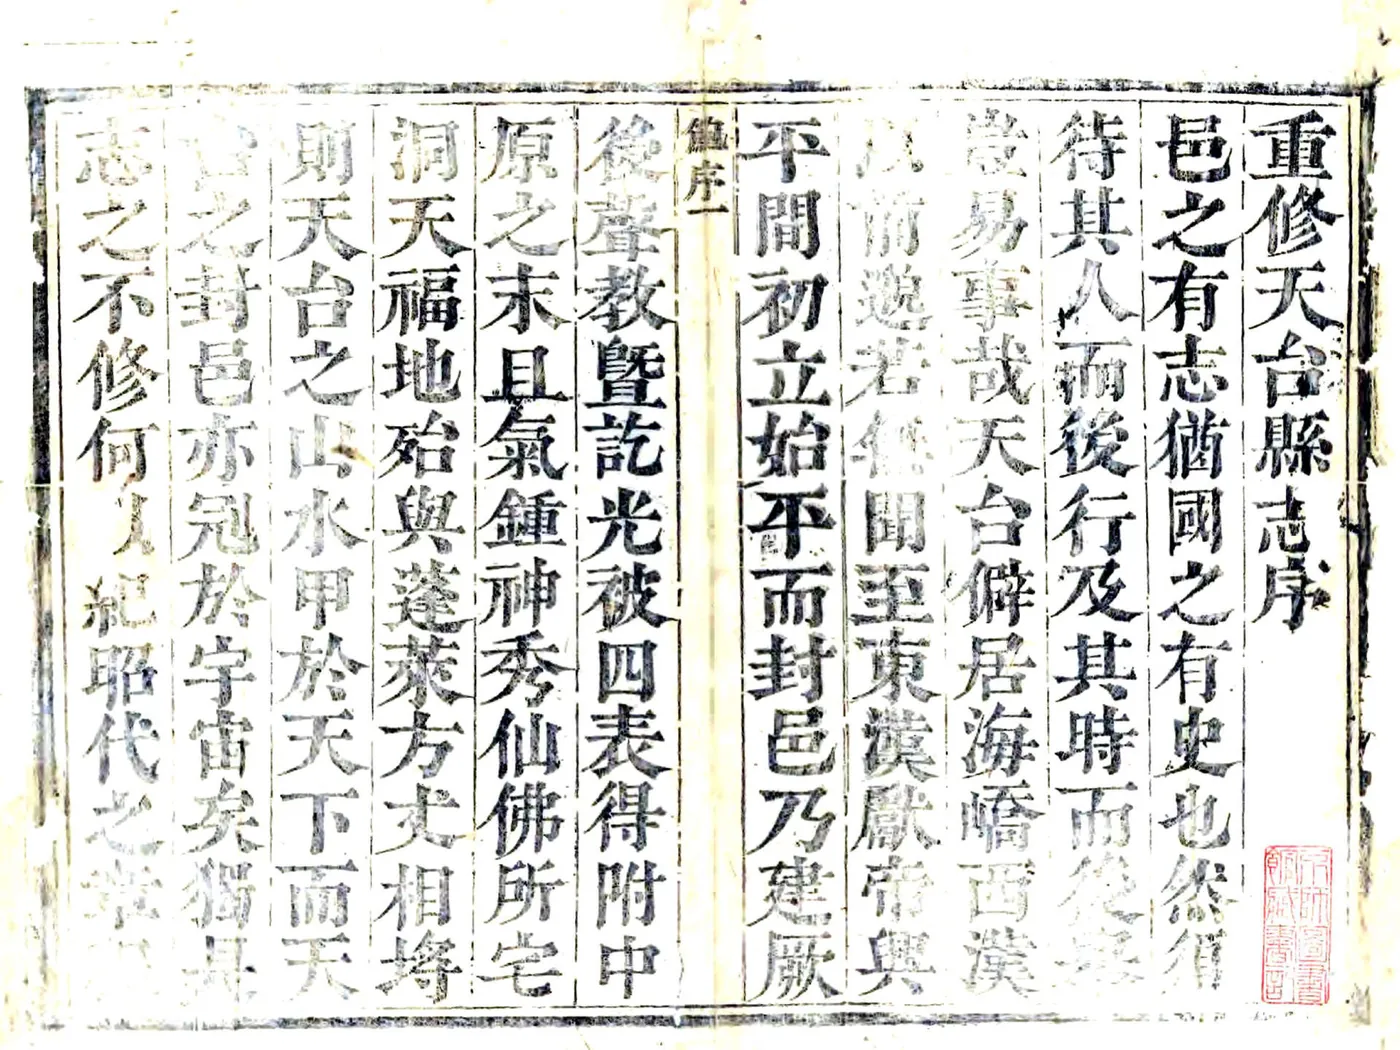 重修天台縣志序
邑之有志猶國之有史也然須
待其人而後行及其時而後
豈易事哉天台僻居海嶠西漢
以前邈若無聞至東漢獻帝興
平間初立始平而封邑乃建厥
仙序一
後聲教曁訖光被四表得附中
原之末且氣鍾神秀仙佛所宅
洞天福地殆與蓬萊方丈相埒
則天台之山水甲於天下而天
台之封邑亦冠於宇宙矣獨是
志之不修何以紀昭代之